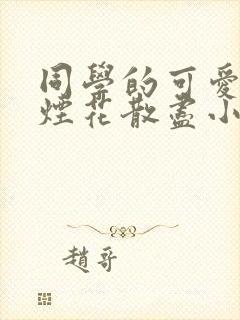 同學的可愛
煙花散盡小
趙哥